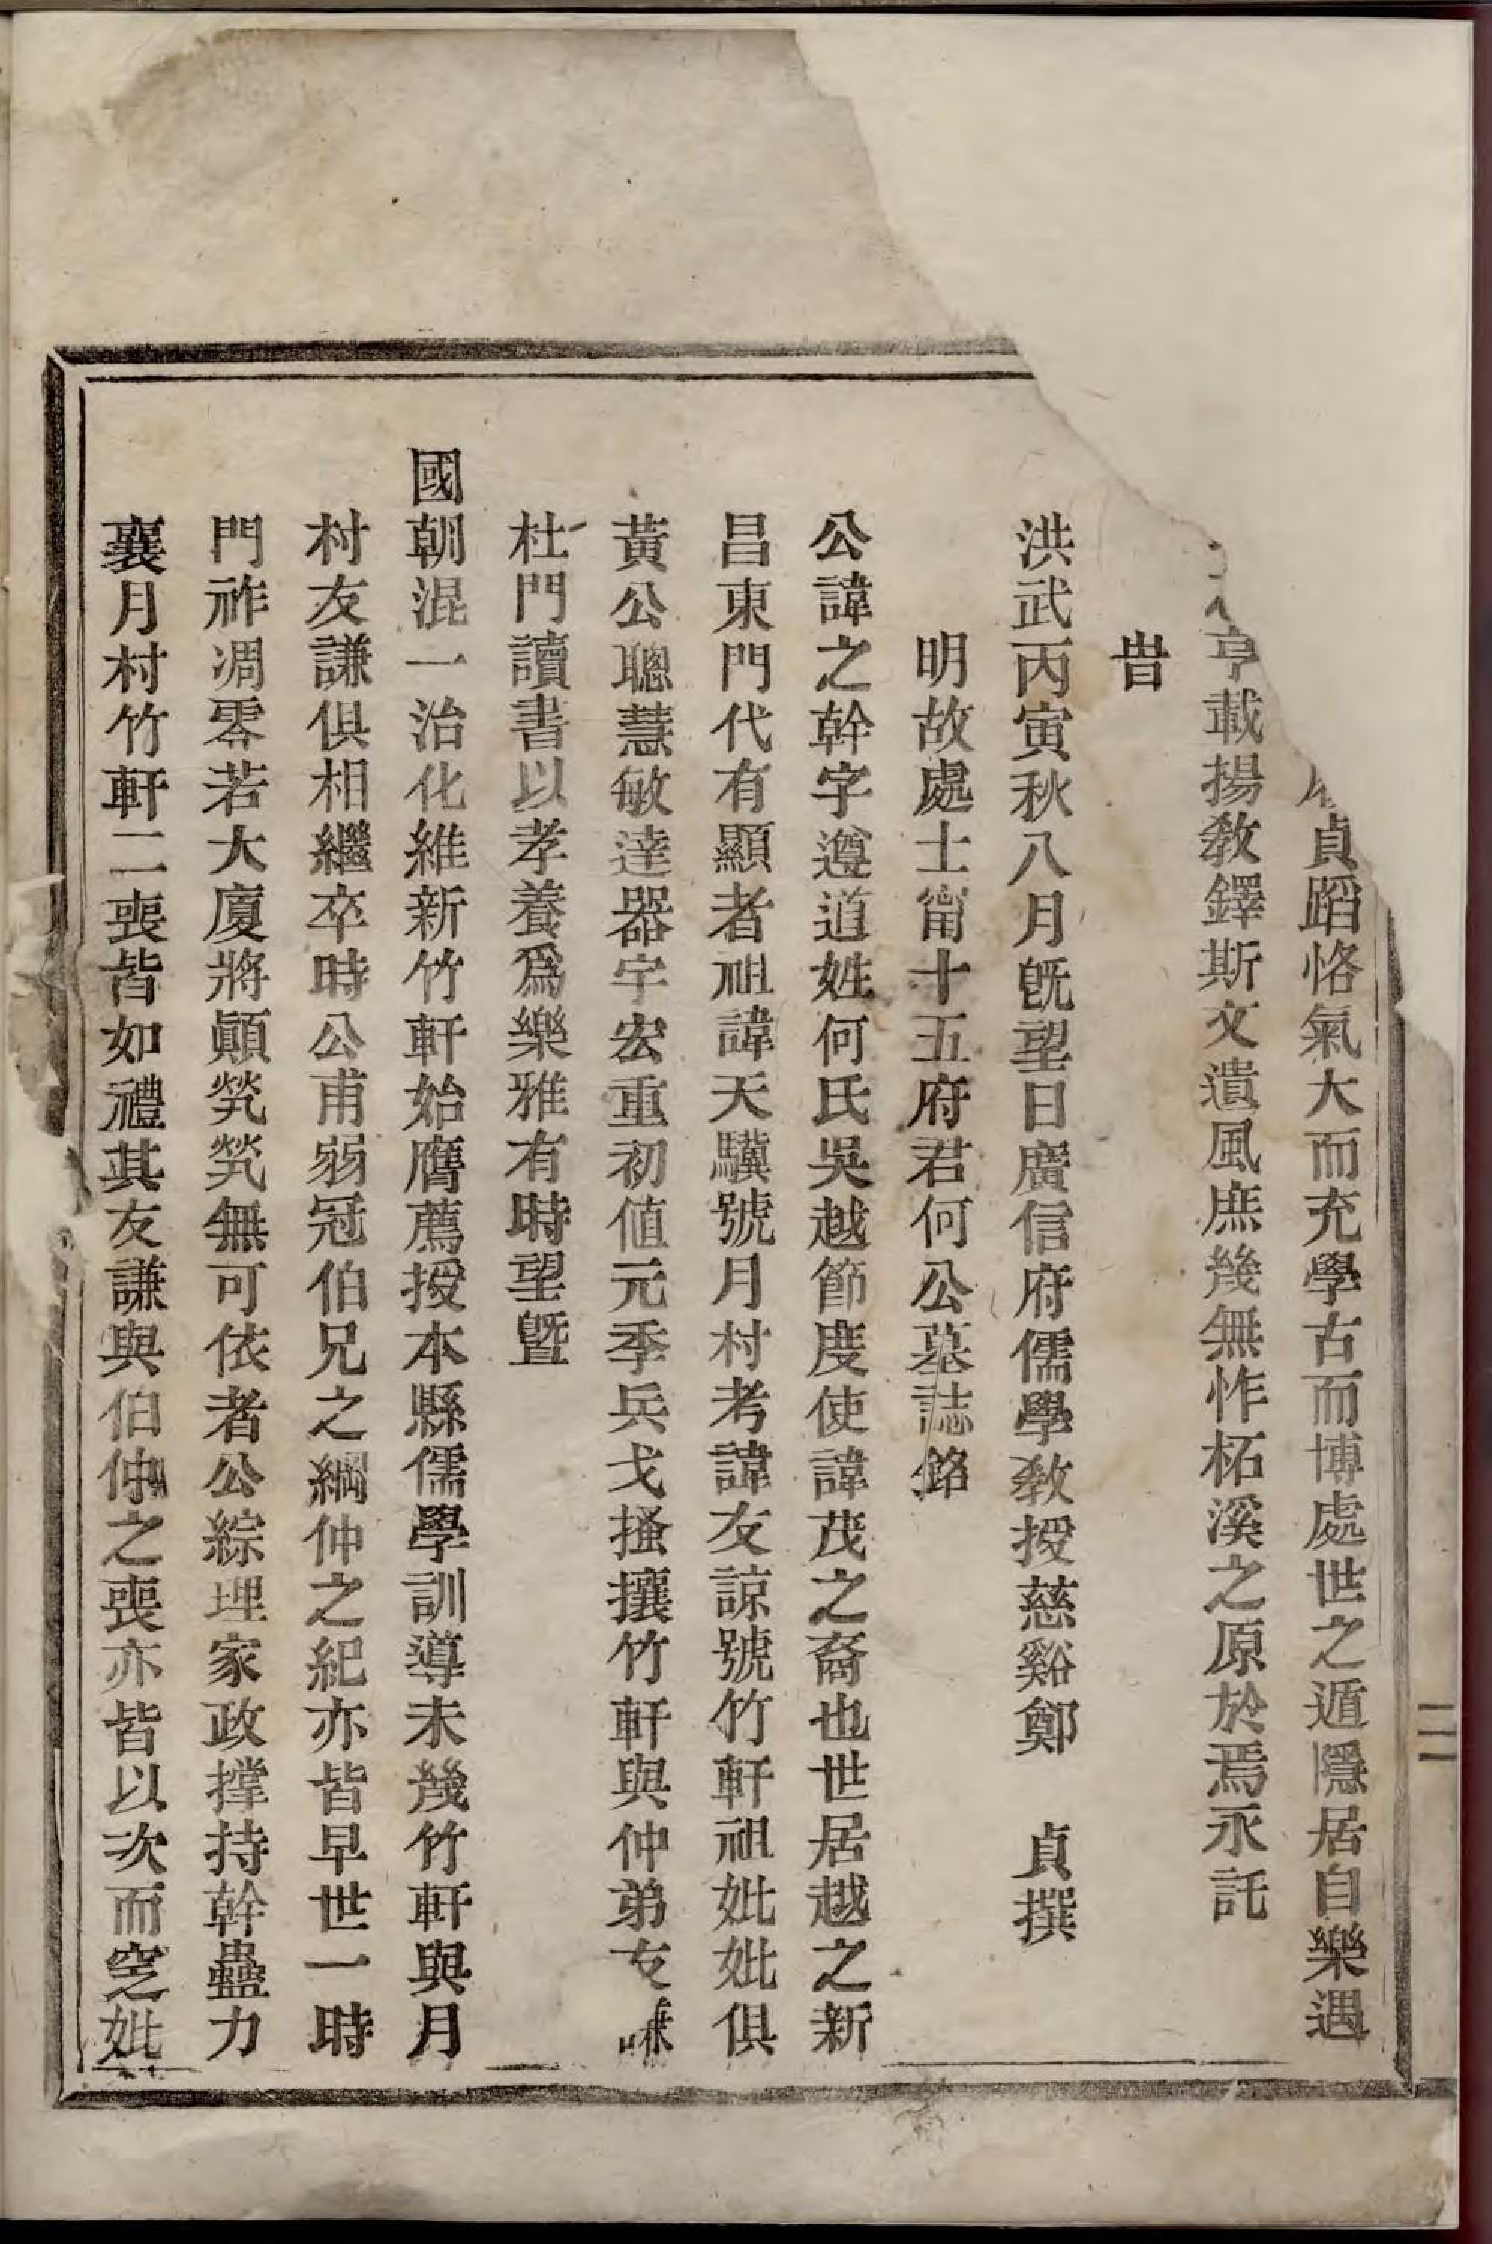 貞蹈恪氣大而充學古而博處世之遁隱居自樂遇
亨載揚教鐸斯文遺風庶幾無怍柘溪之原於焉永託
旹
洪武丙寅秋八月旣望日廣信府儒學教授慈谿鄭 貞撰
明故處士甯十五府君何公墓誌銘
公諱之幹字遵道姓何氏吳越節度使諱茂之裔也世居越之新
昌東門代有顯者祖諱天驥號月村考諱友諒號竹軒祖妣妣俱
黃公聰慧敏達器宇宏重初值元季兵戈搔攘竹軒與仲弟友
杜門讀書以孝養爲樂雅有時望曁
國朝混一治化維新竹軒始膺薦授本縣儒學訓導未幾竹軒與月
村友謙俱相繼卒時公甫弱冠伯兄之綱仲之紀亦皆早世一時
門祚凋零若大廈將顚煢煢無可依者公綜理家政撐持幹蠱力
襄月村竹軒二喪皆如禮其友謙與伯仲之喪亦皆以次而窆妣
二